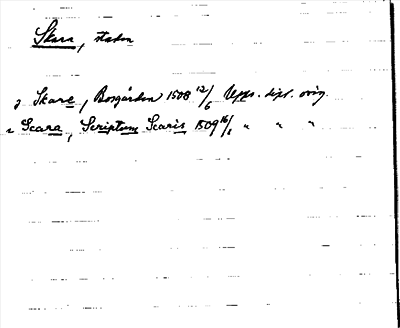 Skara, staden
j Skare, Borgården 1508 12/6 Upps. dipl. orig.
i Scara, Scriptum Scaris 1509 16/1 " " "